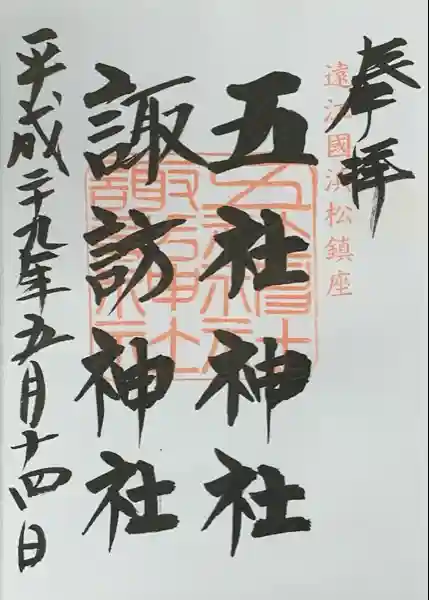 奉拝
遠江國浜松鎮座
五社神社
諏訪神社
平成二十九年五月十四日